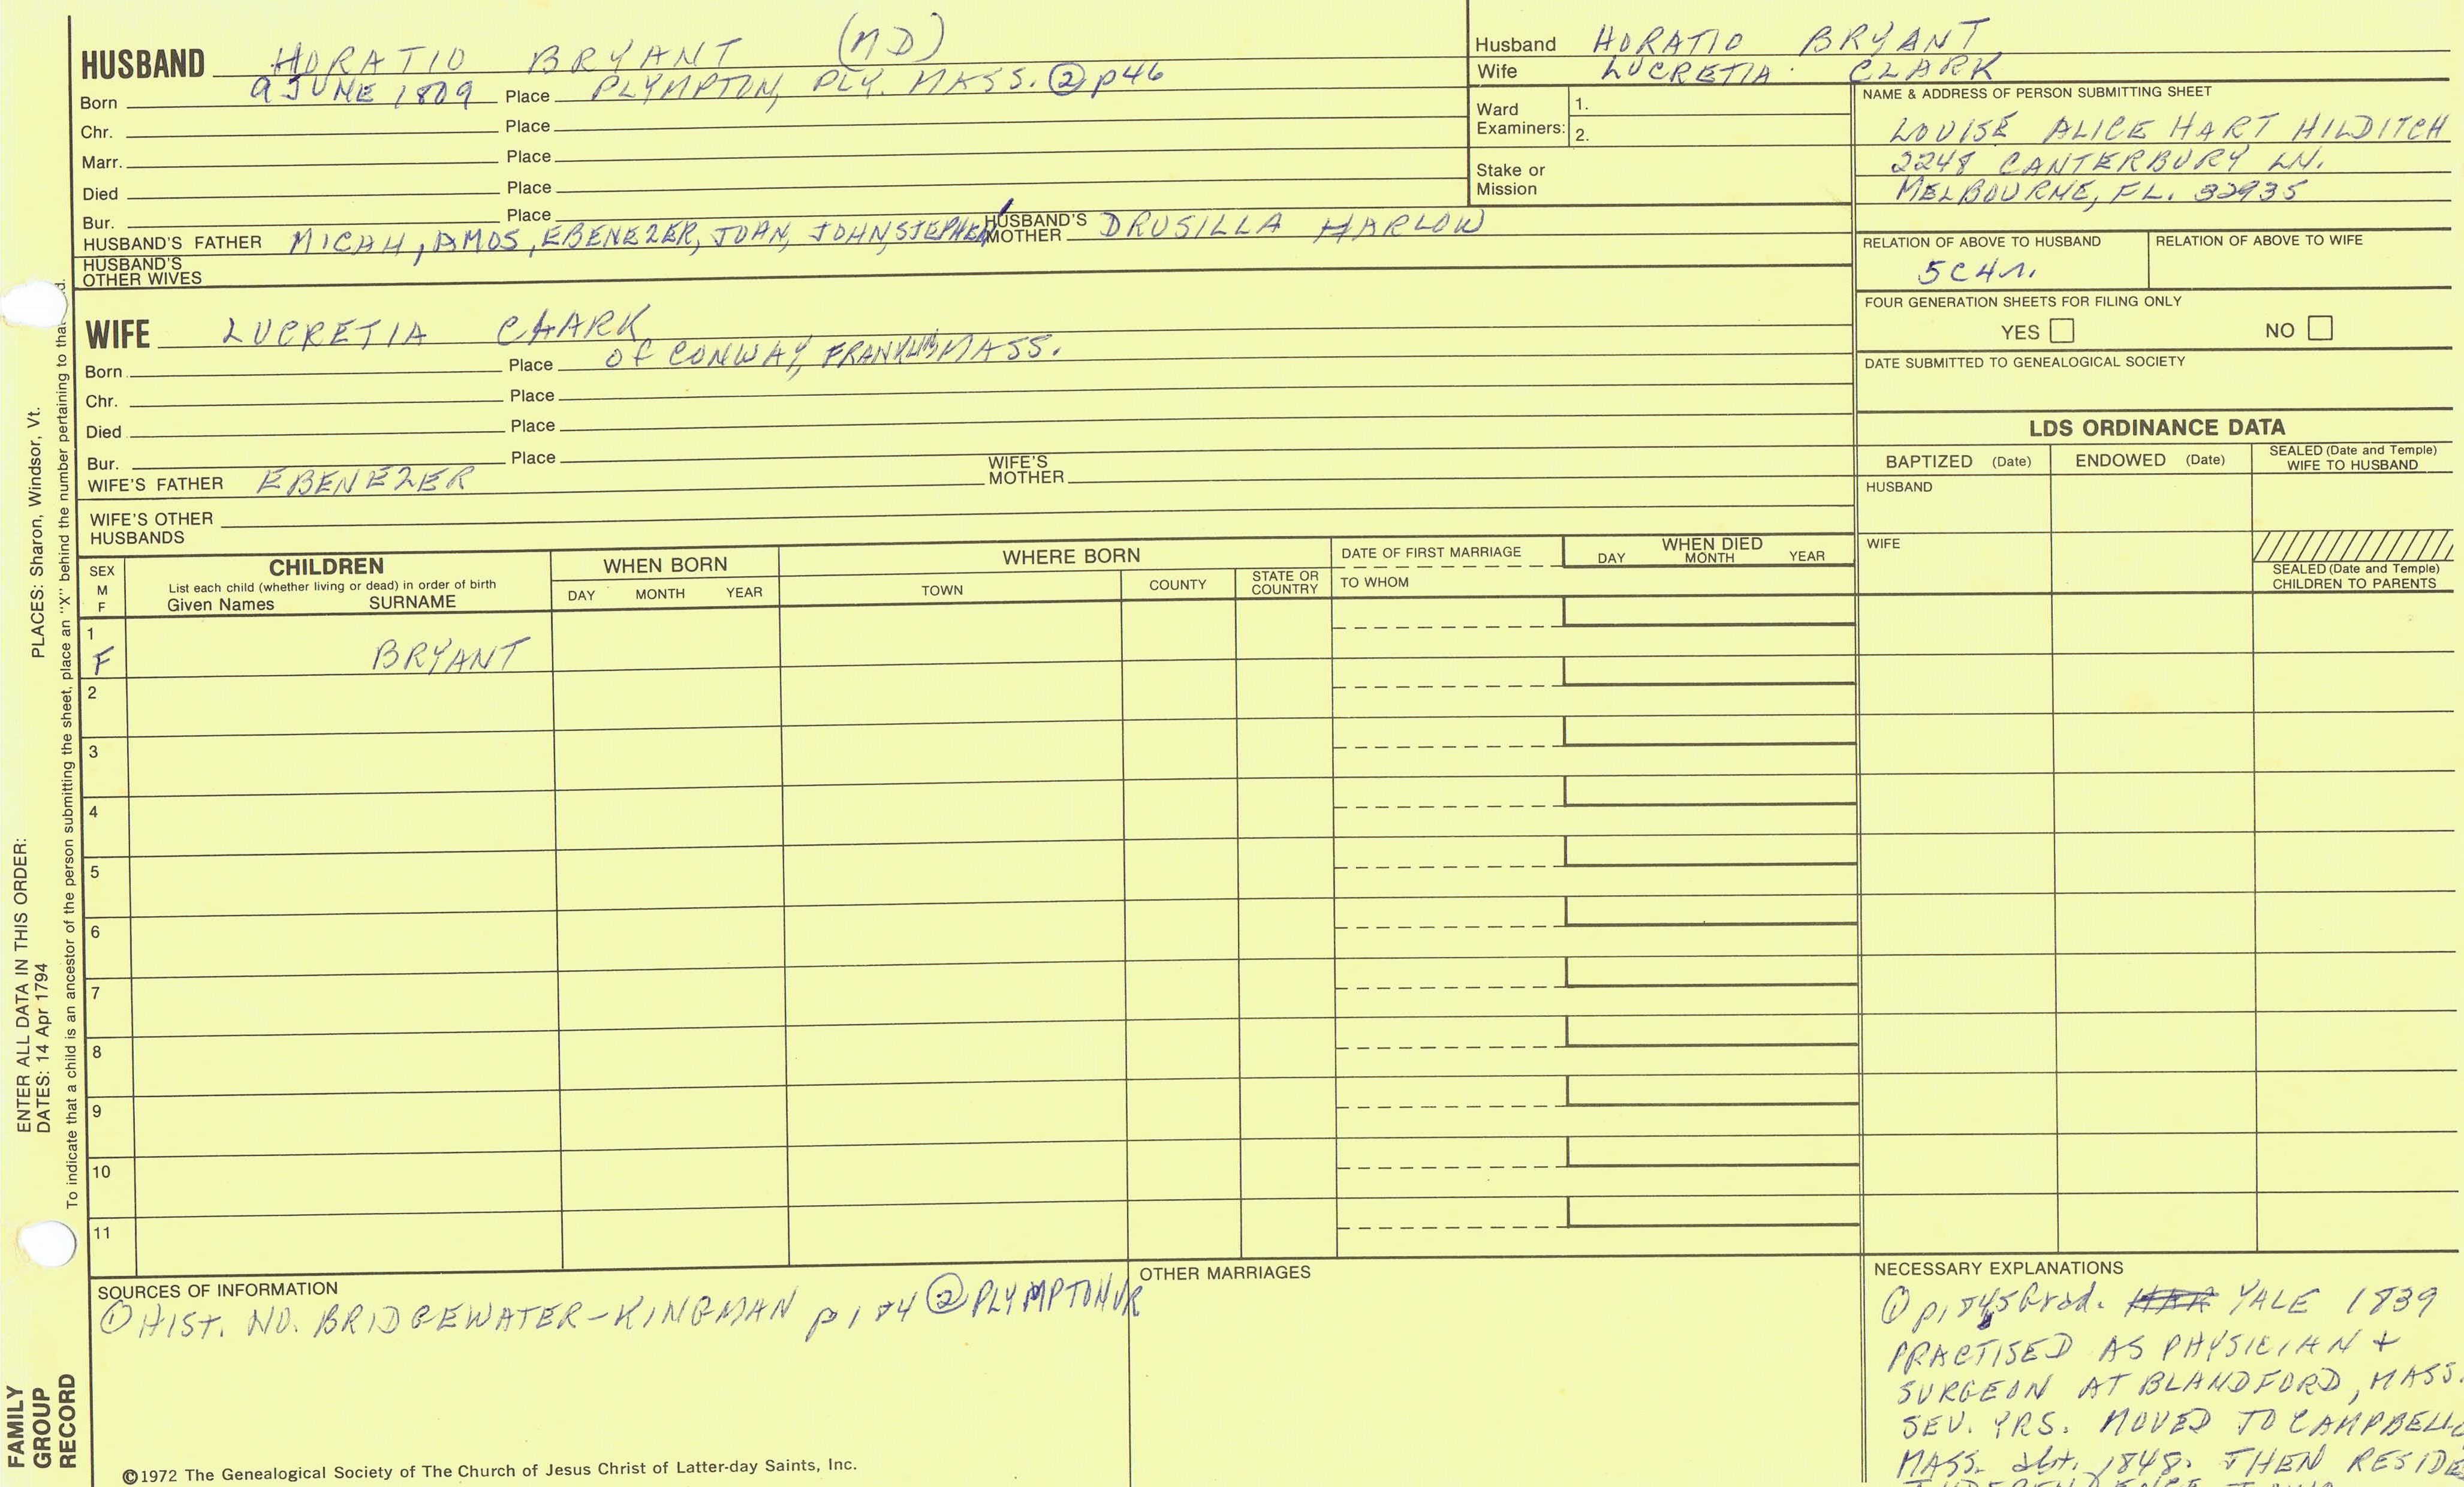 HUSBAND HORATIO BRYANT (MD)
Born 9 JUNE 1809 Place PLYMPTON, PLY. MASS. ② p46
Chr. Place
Marr. Place
Died Place
Bur. Place
HUSBAND'S FATHER MICAH, AMOS, EBENEZER, JOHN, JOHN, STEPHEN HUSBAND'S MOTHER DRUSILLA HARLOW
HUSBAND'S OTHER WIVES
Husband HORATIO BRYANT
Wife LUCRETIA CLARK
Ward Examiners: 1.
2.
Stake or Mission
NAME & ADDRESS OF PERSON SUBMITTING SHEET
LOUISE ALICE HART HILDITCH
2248 CANTERBURY LN.
MELBOURNE, FL. 32935
RELATION OF ABOVE TO HUSBAND RELATION OF ABOVE TO WIFE
5C4r.
FOUR GENERATION SHEETS FOR FILING ONLY
YES NO
DATE SUBMITTED TO GENEALOGICAL SOCIETY
WIFE LUCRETIA CLARK
Born Place of CONWAY, FRANKLIN, MASS.
Chr. Place
Died Place
Bur. Place
WIFE'S FATHER EBENEZER WIFE'S MOTHER
WIFE'S OTHER HUSBANDS
LDS ORDINANCE DATA
BAPTIZED (Date) ENDOWED (Date) SEALED (Date and Temple) WIFE TO HUSBAND
HUSBAND
WIFE
SEALED (Date and Temple) CHILDREN TO PARENTS
SEX M F
CHILDREN
List each child (whether living or dead) in order of birth
Given Names SURNAME
WHEN BORN
DAY MONTH YEAR
WHERE BORN
TOWN COUNTY STATE OR COUNTRY
DATE OF FIRST MARRIAGE
TO WHOM
WHEN DIED
DAY MONTH YEAR
1
F BRYANT
2
3
4
5
6
7
8
9
10
11
SOURCES OF INFORMATION
① HIST. NO. BRIDGEWATER-KINGMAN p184 ② PLYMPTON VR
OTHER MARRIAGES
©1972 The Genealogical Society of The Church of Jesus Christ of Latter-day Saints, Inc.
NECESSARY EXPLANATIONS
① Grad. YALE 1839
PRACTISED AS PHYSICIAN +
SURGEON AT BLANDFORD, MASS.
SEV. YRS. MOVED TO CAMPBELLO
MASS. abt. 1848. THEN RESIDE
ENTER ALL DATA IN THIS ORDER:
DATES: 14 Apr 1794 PLACES: Sharon, Windsor, Vt.
To indicate that a child is an ancestor of the person submitting the sheet, place an "X" behind the number pertaining to that
FAMILY
GROUP
RECORD